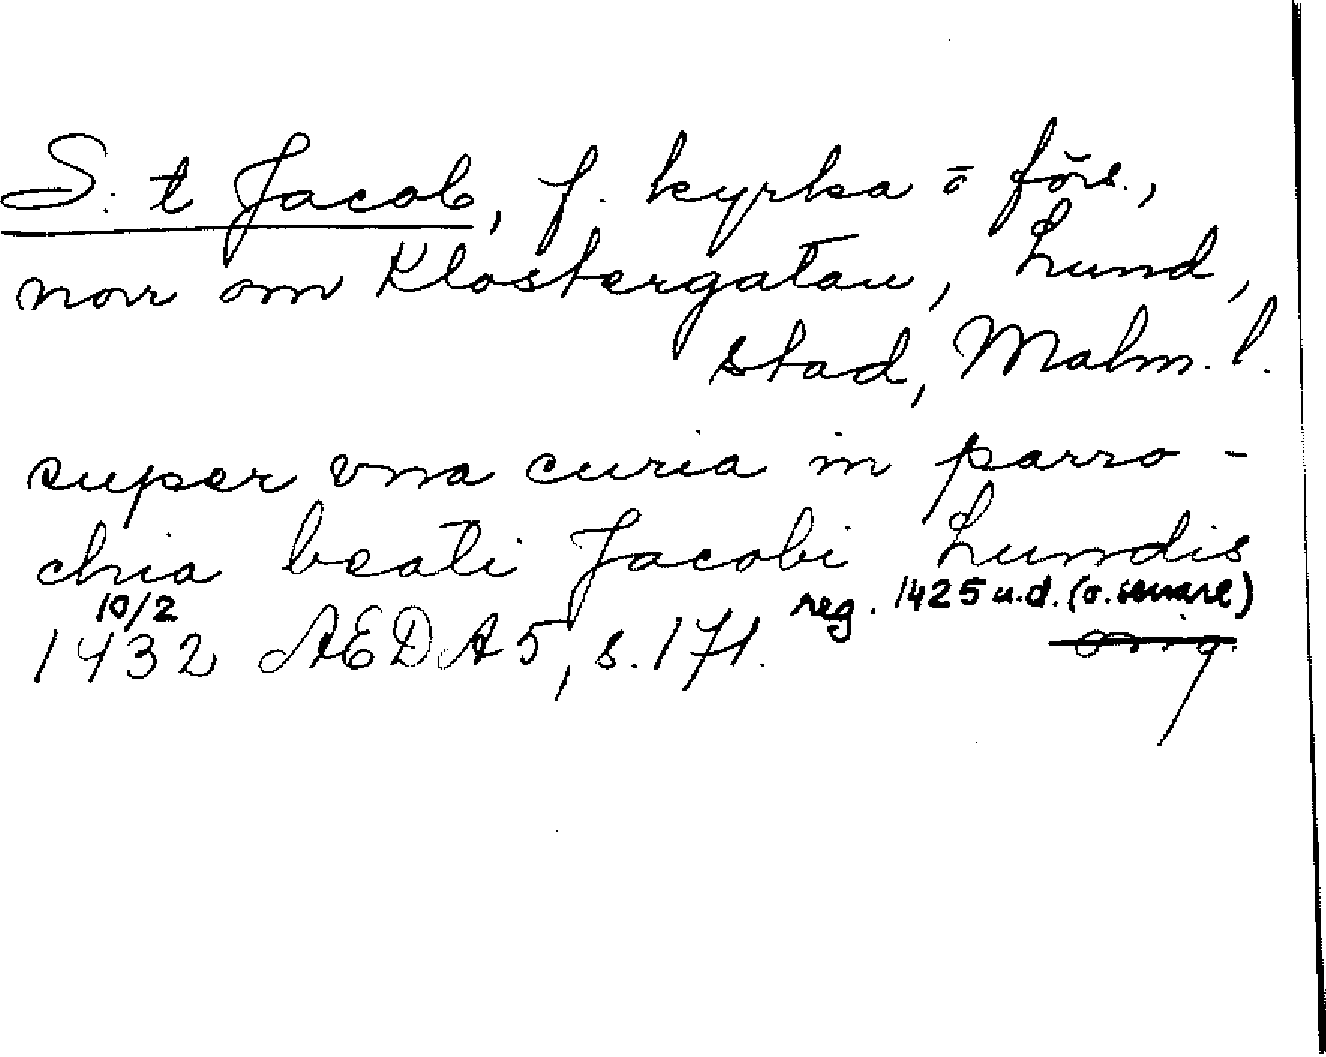 S:t Jacob, f. kyrka o förs.,
norr om Klostergatan, Lund,
stad, Malm. l.
super vna curia in parro-
chia beati Jacobi Lundis
10/2 reg. 1425 u.d. (o. senare)
1432 AEDA 5, s. 171. orig.